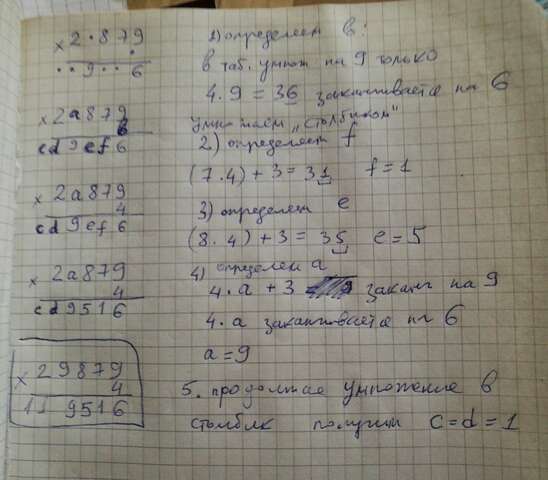 × 2 · 8 7 9
·
· · 9 · · 6
× 2 a 8 7 9
в
c d 9 e f 6
× 2 a 8 7 9
4
c d 9 e f 6
× 2 a 8 7 9
4
c d 9 5 1 6
× 2 9 8 7 9
4
1 1 9 5 1 6
1) определяем в:
в таб. умнож на 9 только
4 · 9 = 36 заканчивается на 6
умножаем „столбиком"
2) определяем f
(7 · 4) + 3 = 31 f = 1
3) определяем e
(8 · 4) + 3 = 35 e = 5
4) определяем a
4 · a + 3 заканч на 9
4 · a заканчивается на 6
a = 9
5. продолжае умножение в
столбик получим c = d = 1